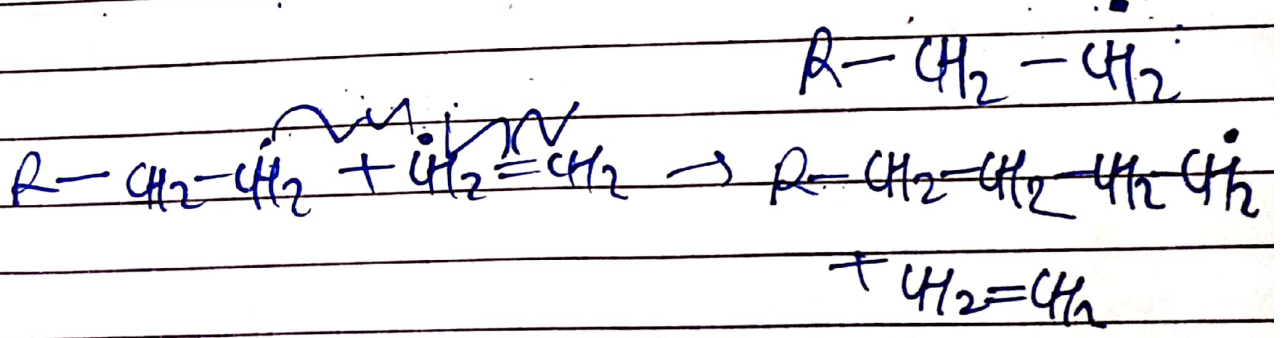 R – CH₂ – ĊH₂
R – CH₂ – ĊH₂ + ĊH₂ = CH₂ → R – CH₂ – CH₂ – CH₂ ĊH₂
+ CH₂ = CH₂